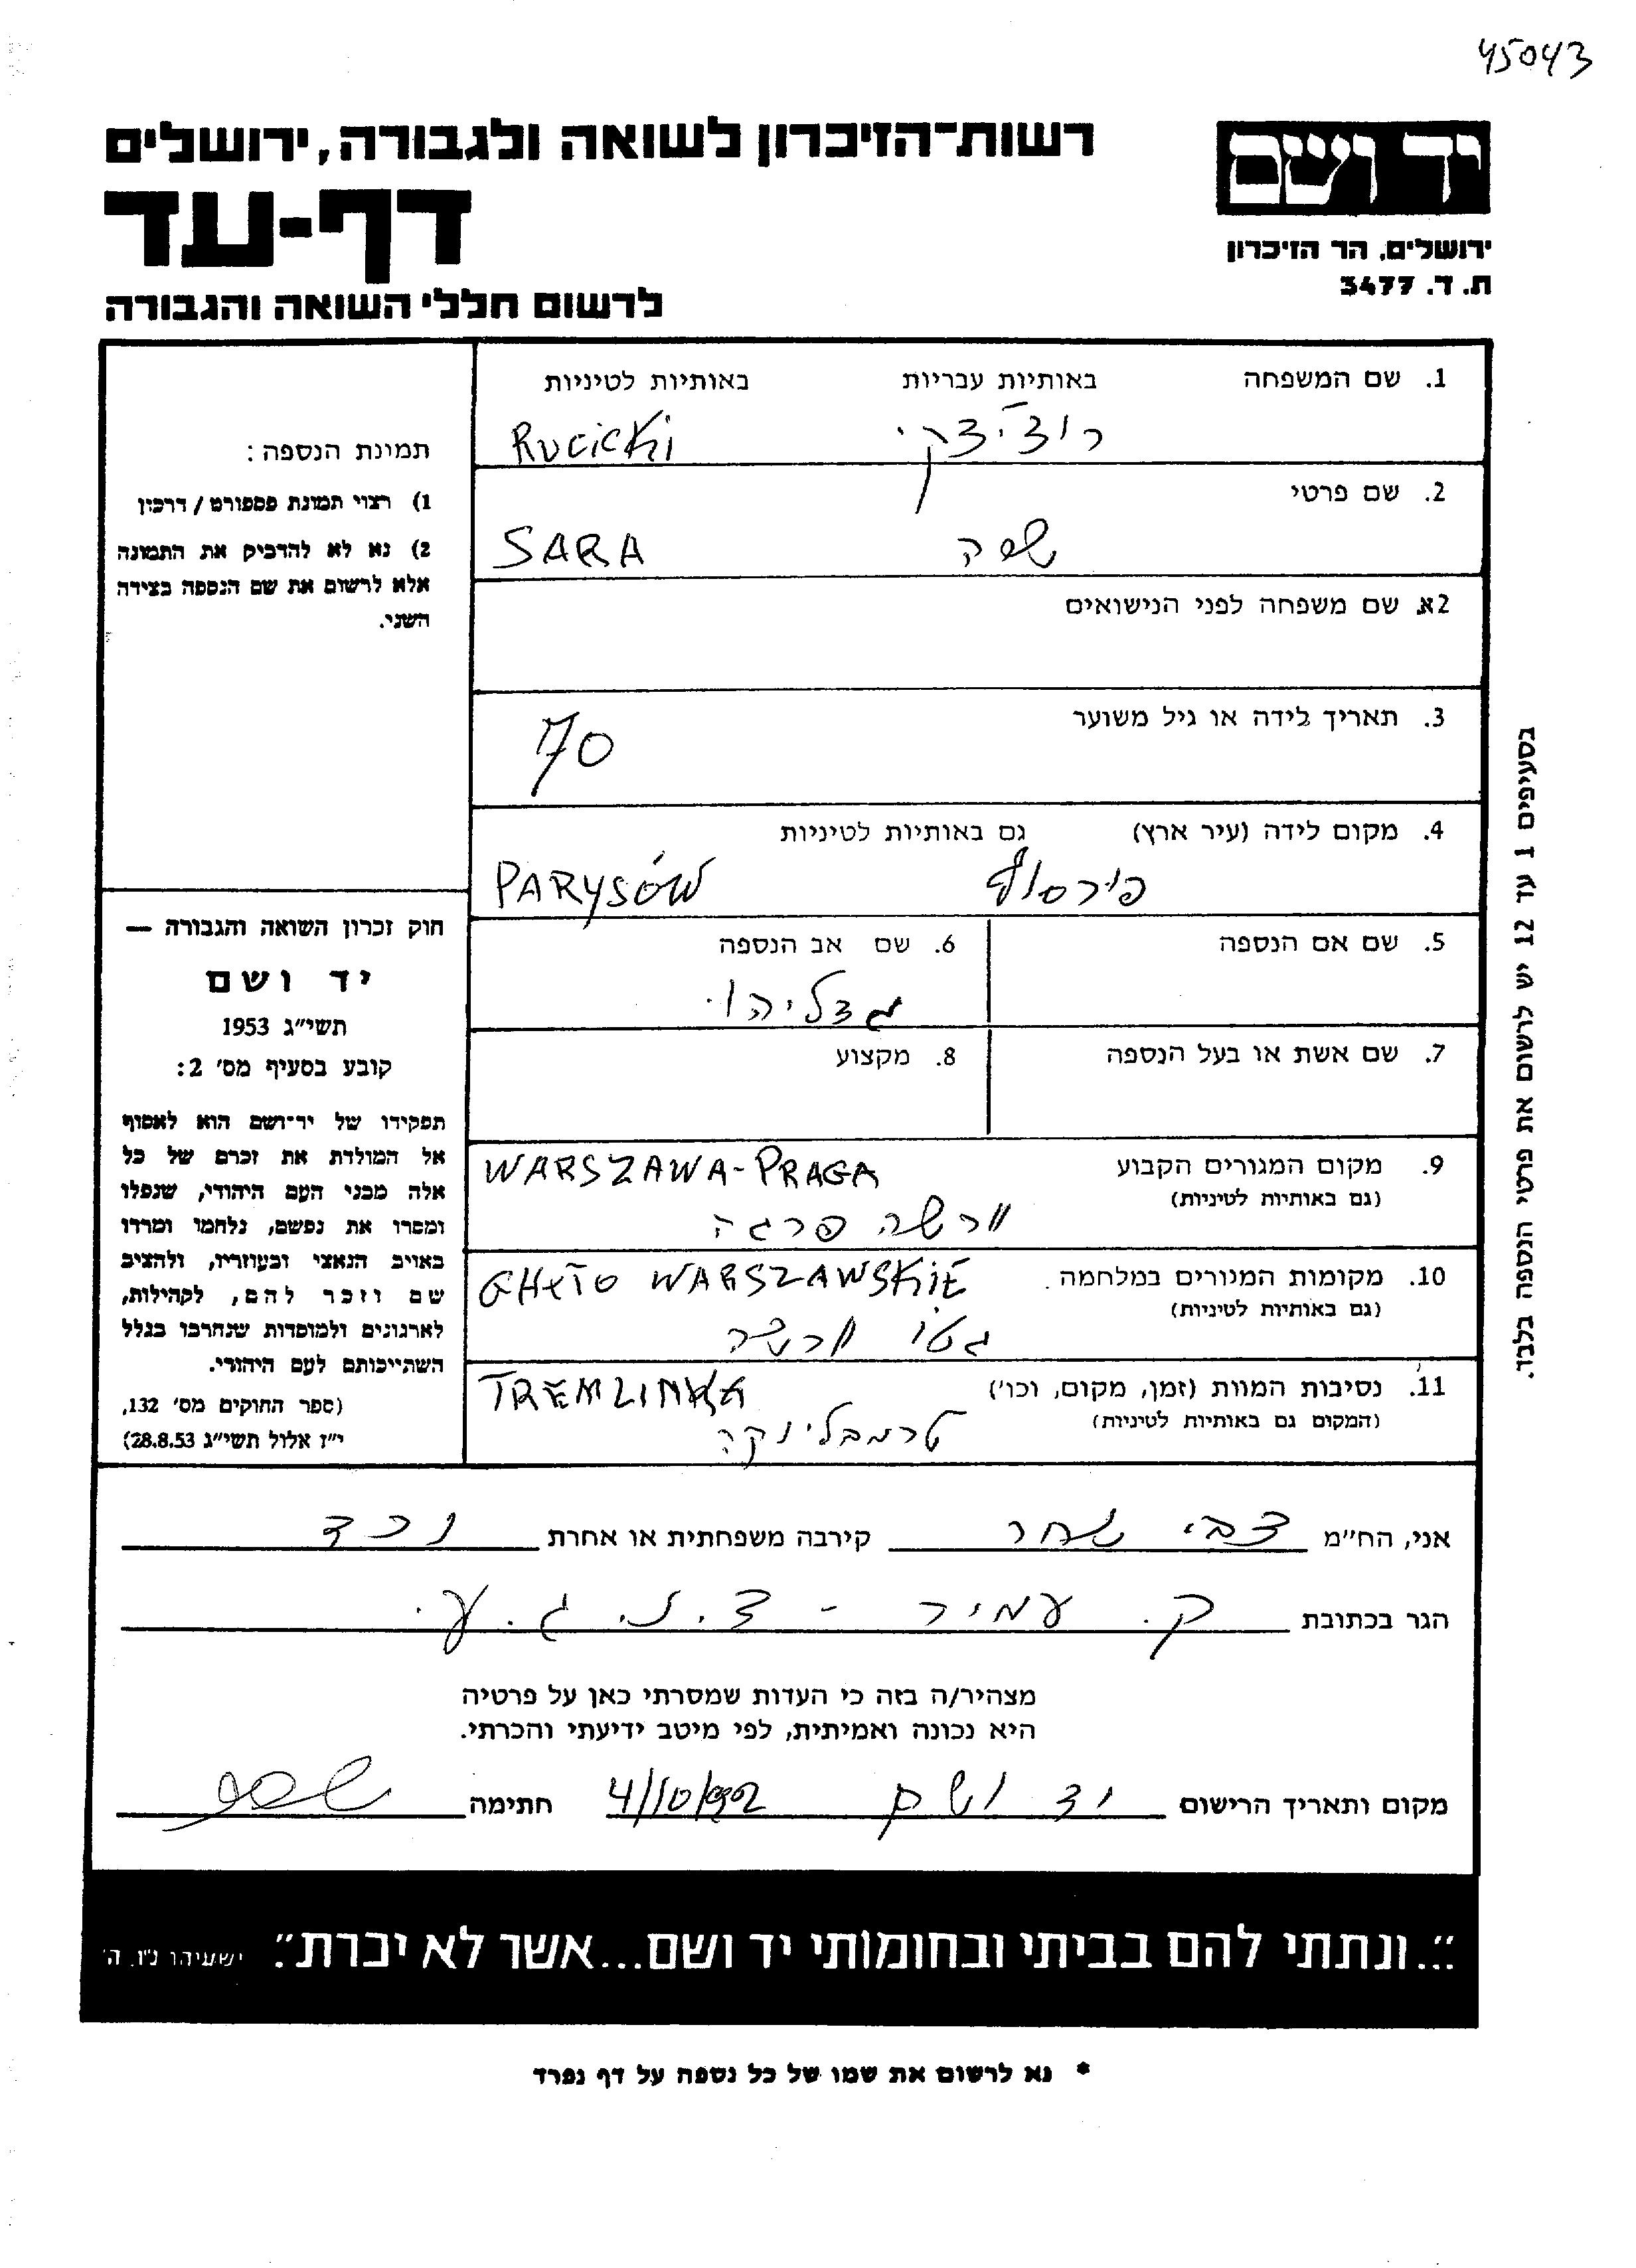 45043
רשות־הזיכרון לשואה ולגבורה, ירושלים
יד ושם
דף-עד
ירושלים, הר הזיכרון
ת. ד. 3477
לרשום חללי השואה והגבורה
1. שם המשפחה באותיות עבריות באותיות לטיניות
רוצ'יצקי Rucicki
2. שם פרטי
שרה SARA
2א. שם משפחה לפני הנישואים
3. תאריך לידה או גיל משוער
70
4. מקום לידה (עיר ארץ) גם באותיות לטיניות
פירסוף PARYSÓW
5. שם אם הנספה
6. שם אב הנספה
גדליהו
7. שם אשת או בעל הנספה
8. מקצוע
9. מקום המגורים הקבוע
(גם באותיות לטיניות)
WARSZAWA-PRAGA
וורשה פרגה
10. מקומות המגורים במלחמה
(גם באותיות לטיניות)
GHETO WARSZAWSKIE
גטו וורשה
11. נסיבות המוות (זמן, מקום, וכו')
(המקום גם באותיות לטיניות)
TREMLINKA
טרמבלינקה
תמונת הנספה:
1) רצוי תמונת פספורט / דרכון
2) נא לא להדביק את התמונה
אלא לרשום את שם הנספה בצידה
השני.
חוק זכרון השואה והגבורה —
יד ושם
תשי"ג 1953
קובע בסעיף מס' 2:
תפקידו של יד־ושם הוא לאסוף
אל המולדת את זכרם של כל
אלה מבני העם היהודי, שנפלו
ומסרו את נפשם, נלחמו ומרדו
באויב הנאצי ובעוזריו, ולהציב
שם וזכר להם, לקהילות,
לארגונים ולמוסדות שנחרבו בגלל
השתייכותם לעם היהודי.
(ספר החוקים מס' 132,
י"ז אלול תשי"ג 28.8.53)
בסעיפים 1 עד 12 יש לרשום את פרטי הנספה בלבד.
אני, הח"מ צבי שחר קירבה משפחתית או אחרת נכד
הגר בכתובת ק. עמיר - ד.נ. ג.ע.
מצהיר/ה בזה כי העדות שמסרתי כאן על פרטיה
היא נכונה ואמיתית, לפי מיטב ידיעתי והכרתי.
מקום ותאריך הרישום יד ושם 4/10/92 חתימה
"...ונתתי להם בביתי ובחומותי יד ושם...אשר לא יכרת". ישעיהו נ"ו, ה'
* נא לרשום את שמו של כל נספה על דף נפרד